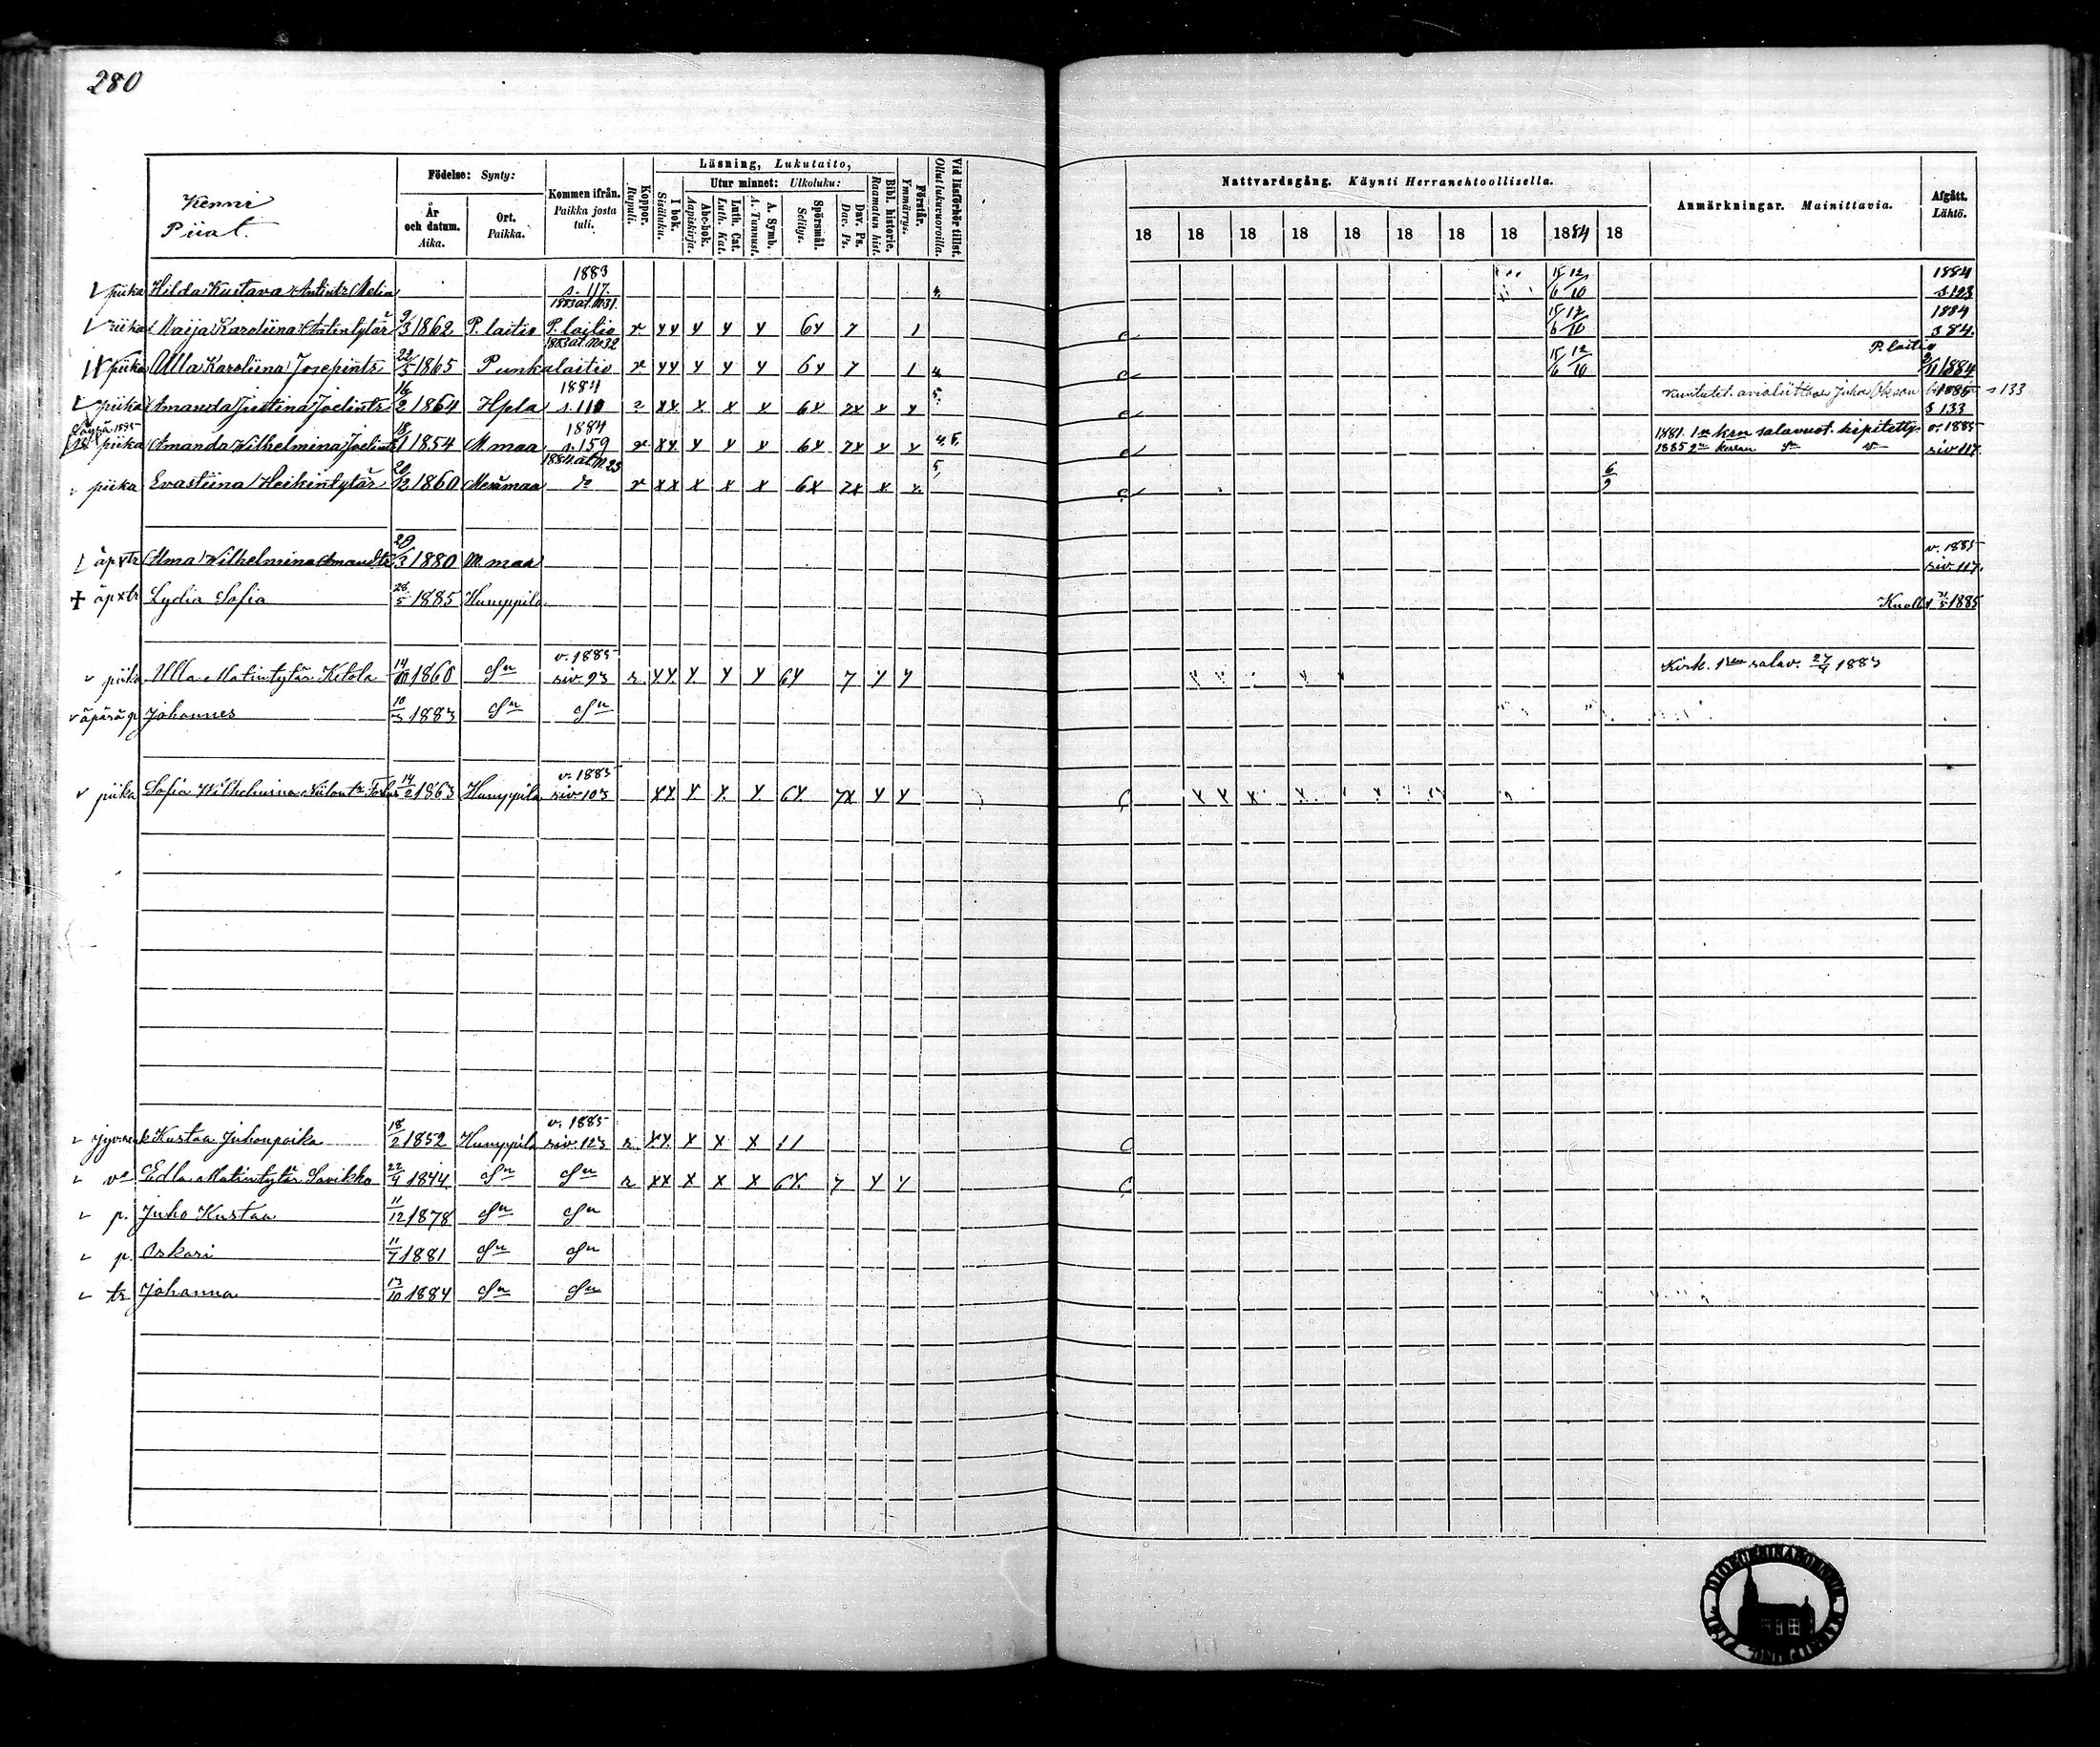 280
Kenni
Piiat.
Födelse: Synty:
År och datum. Aika.
Ort. Paikka.
Kommen ifrån. Paikka josta tuli.
Koppor. Rupuli.
Läsning, Lukutaito,
I bok. Sisäluku.
Utur minnet: Ulkoluku:
Abc-bok. Aapiskirja.
Luth. Cat. Luth. Kat.
A. Symb. A. Tunnust.
Spörsmål. Selitys.
Dav. Ps. Dav. Ps.
Bibl. historie. Raamatun hist.
Förstår. Ymmärrys.
Vid läsförhör tillst. Ollut lukuvuoroilla.
Nattvardsgång. Käynti Herranehtoollisella.
18 18 18 18 18 18 18 18 1884 18
Anmärkningar. Mainittavia.
Afgått. Lähtö.
piika Hilda Kustava Antintr Melia 1883 s. 117. 4. 15/6 12/10 1884 s 123
1883 at. No 31
piika Maija Karoliina Antintytär 9/3 1862 P. laitio P. laitio r YY Y Y Y 6Y 7 1 15/6 12/10 1884 s 84.
1883 at. No 32
piika Ulla Karoliina Josepintr 22/5 1865 Punkalaitio r YY Y Y Y 6Y 7 1 4 15/6 12/10 P. laitio 1884
piika Amanda Justina Joelintr 16/2 1864 Hpla 1884 s. 110 r XX X X X 6X 7X X X 5. Kuulutet. avioliittoon Juho 1885 s 133
s 133
piika Amanda Wilhelmina Joelintr 18/1 1854 M. maa 1884 s. 159 r XX Y Y Y 6Y 7X Y Y 4. 5. 1881. 1en krn salavuot. ripitetty v. 1885
1885 2en kerran siv 117.
1884 at. No 23
piika Evastiina Heikintytär 20/12 1860 Merimaa r XX X X X 6X 7X X X. 5 6/9
äpxtr Alma Wilhelmina Amandtr 20/3 1880 M. maa v. 1885 siv. 117.
äpxtr Lydia Sofia 28/5 1885 Humppila Kuollut 1885
piika Ulla Matintytär Ketola 14/10 1860 v. 1885 siv. 93 r. YY. Y Y Y 6Y 7 Y Y Kirk. 1sen salav. 1883
äpärä p Johannes 10/3 1883
piika Sofia Wilhelmina 14/2 1863 Humppila v. 1885 siv. 103 XX Y X. Y 6X. 7X Y Y
Kustaa Juhonpoika 18/2 1852 Humppila v. 1885 siv. 123 r. XX. X X X 11
vo Edla Matintytär Savikko 22/4 1844 r XX X X X 6X. 7 Y Y
p. Juho Kustaa 11/12 1878
p. Oskari 11/7 1881
tr Johanna 13/10 1884